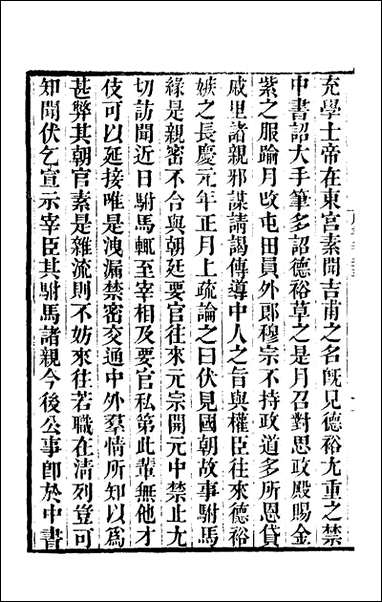 充學士帝在東宮素聞吉甫之名旣見德裕尤重之禁
中書詔大手筆多詔德裕草之是月召對思政殿賜金
紫之服踰月攺屯田員外郞穆宗不持政道多所恩貸
戚里諸親邪謀請謁傳導中人之旨與權臣往來德裕
嫉之長慶元年正月上疏論之曰伏見國朝故事駙馬
緣是親密不合與朝廷要官往來元宗開元中禁止尤
切訪聞近日駙馬輒至宰相及要官私第此輩無他才
伎可以延接唯是洩漏禁密交通中外羣情所知以爲
甚弊其朝官素是雜流則不妨來往若職在清列豈可
知聞伏乞宣示宰臣其駙馬諸親今後公事卽於中書